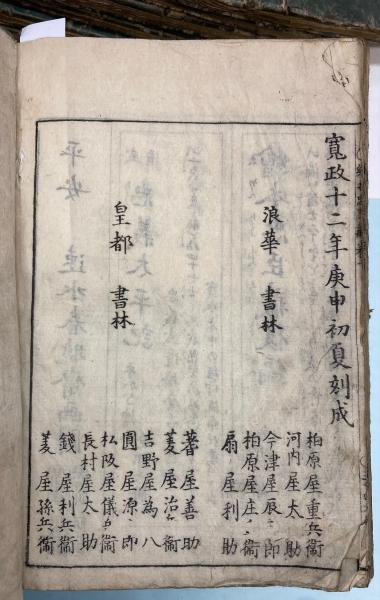 寛政十二年庚申初夏刻成
浪華 書林
柏原屋重兵衞
河内屋太助
今津屋辰三郎
柏原屋庄兵衞
扇屋利助
皇都 書林
蓍屋善助
菱屋治兵衞
吉野屋為八
圓屋源三郎
松阪屋儀兵衞
長村屋太助
錢屋利兵衞
菱屋孫兵衞